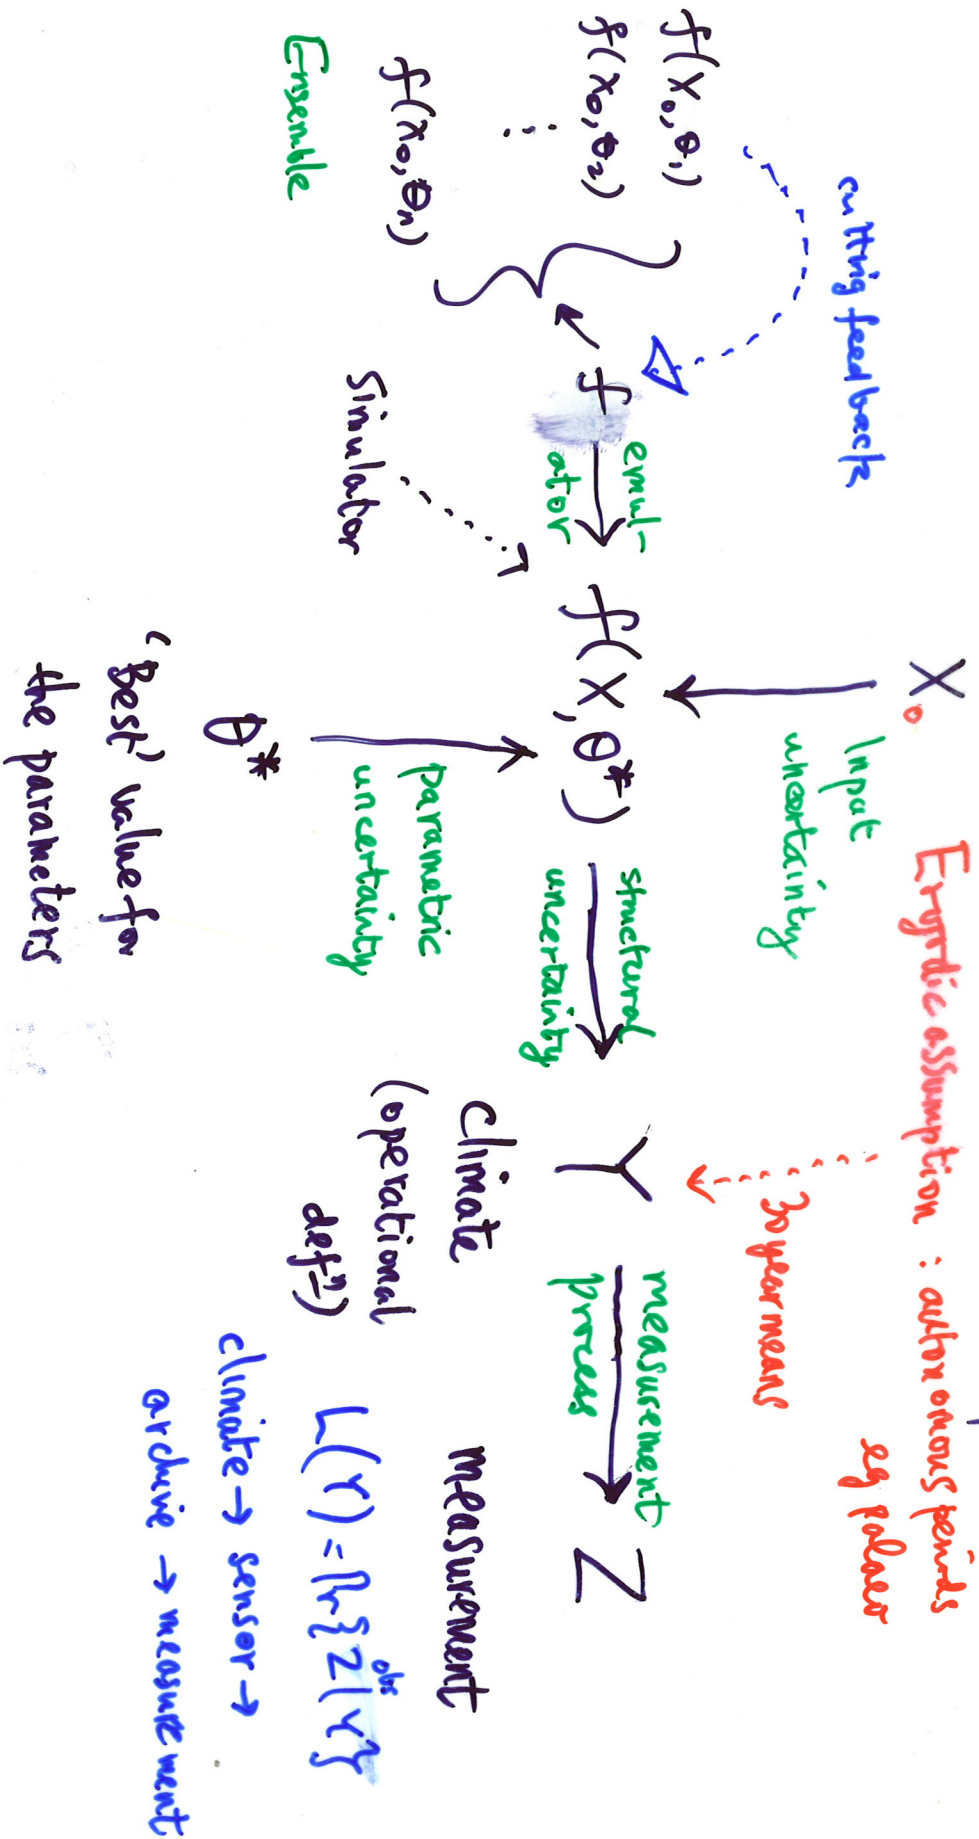 Ergodic assumption : autonomous periods
eg palaeo
30 year means
X₀
Input
uncertainty
cutting feedback
f(X₀, θ₁)
f(x₀, θ₂)
⋮
f(x₀, θₙ)
Ensemble
f
emul-
ator
Simulator
f(X, θ*)
structural
uncertainty
Y
measurement
process
Z
parametric
uncertainty
θ*
'Best' value for
the parameters
climate
(operational
defⁿ)
measurement
L(Y) = Pr{Zᵒᵇˢ | Y}
climate → sensor →
archive → measurement